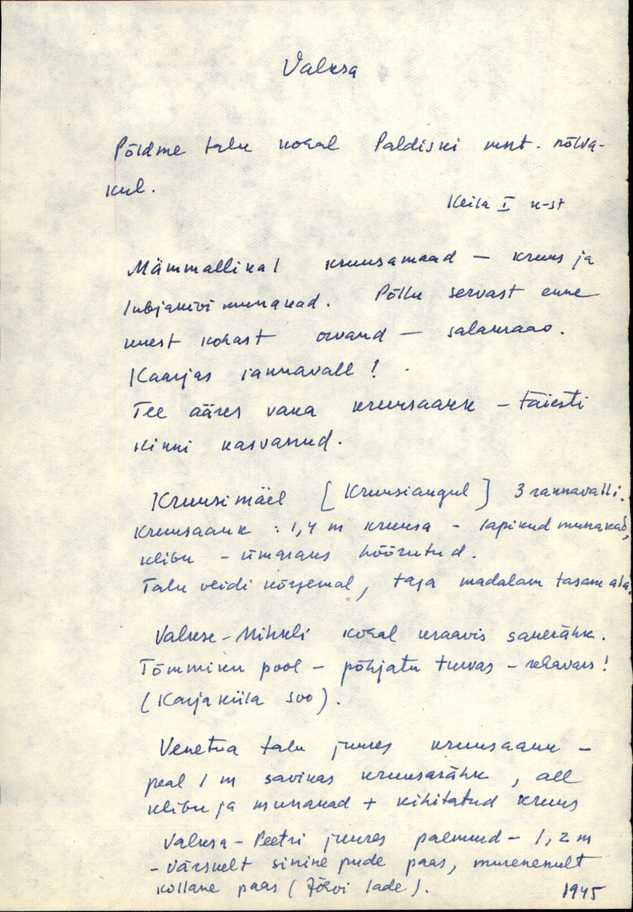 Valksa
Põldme talu kohal Paldiski mnt. nõlva-
kul.
Keila I n-st
Mämmallikal kruusamaad — kruus ja
lubjakivi munakad. Põllu servast enne
meest kohast orvand — salakraav.
Kaarjas rannavall!
Tee ääres vana kruusaauk — täiesti
kinni kasvanud.
Kruusimäel [Kruusiaugul] 3 rannavalli.
Kruusaauk : 1,4 m kruusa — lapikud munakad,
klibu — ümaraks hõõrutud.
Talu veidi kõrgemal, taga madalam tasane ala.
Valkse-Mihkli kohal kraavis savirähk.
Tõmmiku pool — põhjatu turvas — rabavars!
(Karjaküla soo).
Venetua talu juures kruusaauk —
peal 1 m savikas kruusarähk, all
klibu ja munakad + kihitatud kruus
Valksa-Peetri juures paemurd — 1,2 m
- värskelt sinine pude paas, murenenult
kollane paas (Jõhvi lade).
1945